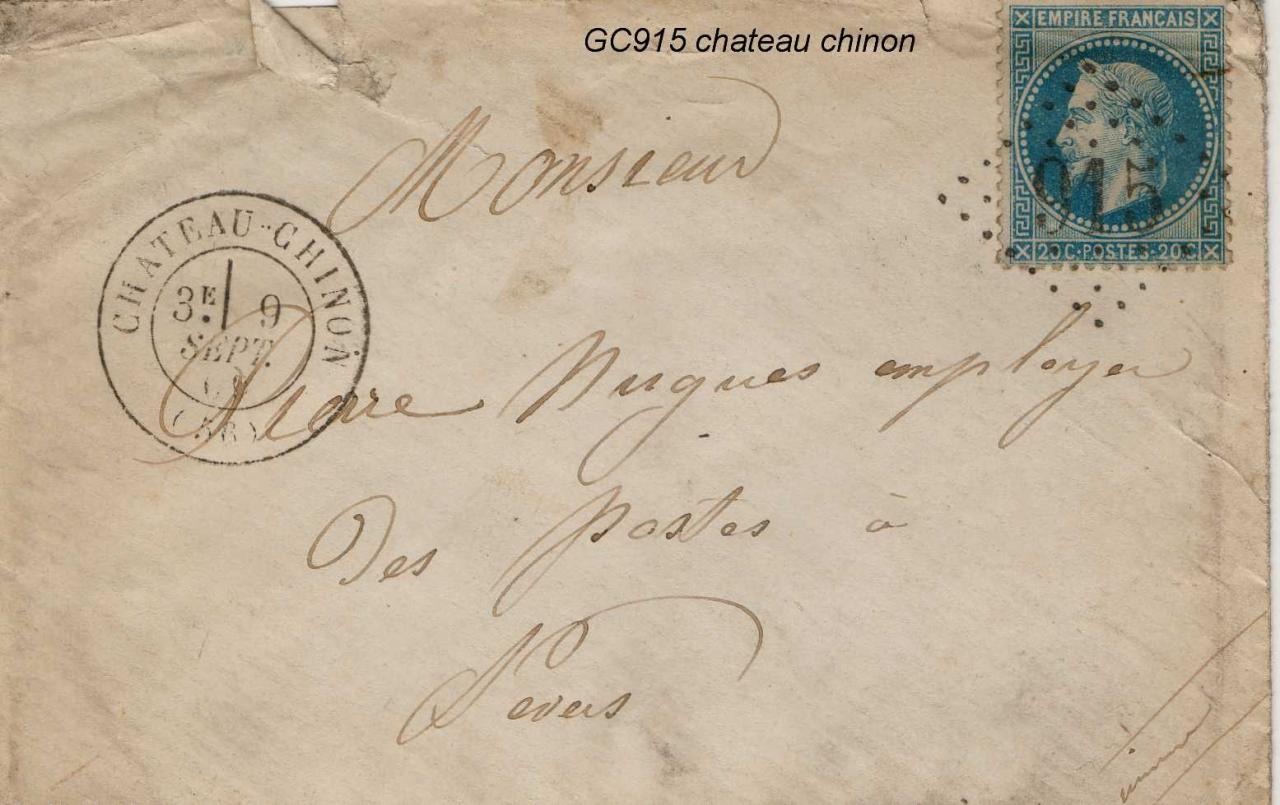 GC915 chateau chinon
EMPIRE FRANCAIS
915
20C·POSTES·20C
CHATEAU-CHINON
3E 9
SEPT.
Monsieur
Pierre Nugues employer
Des postes à
Nevers